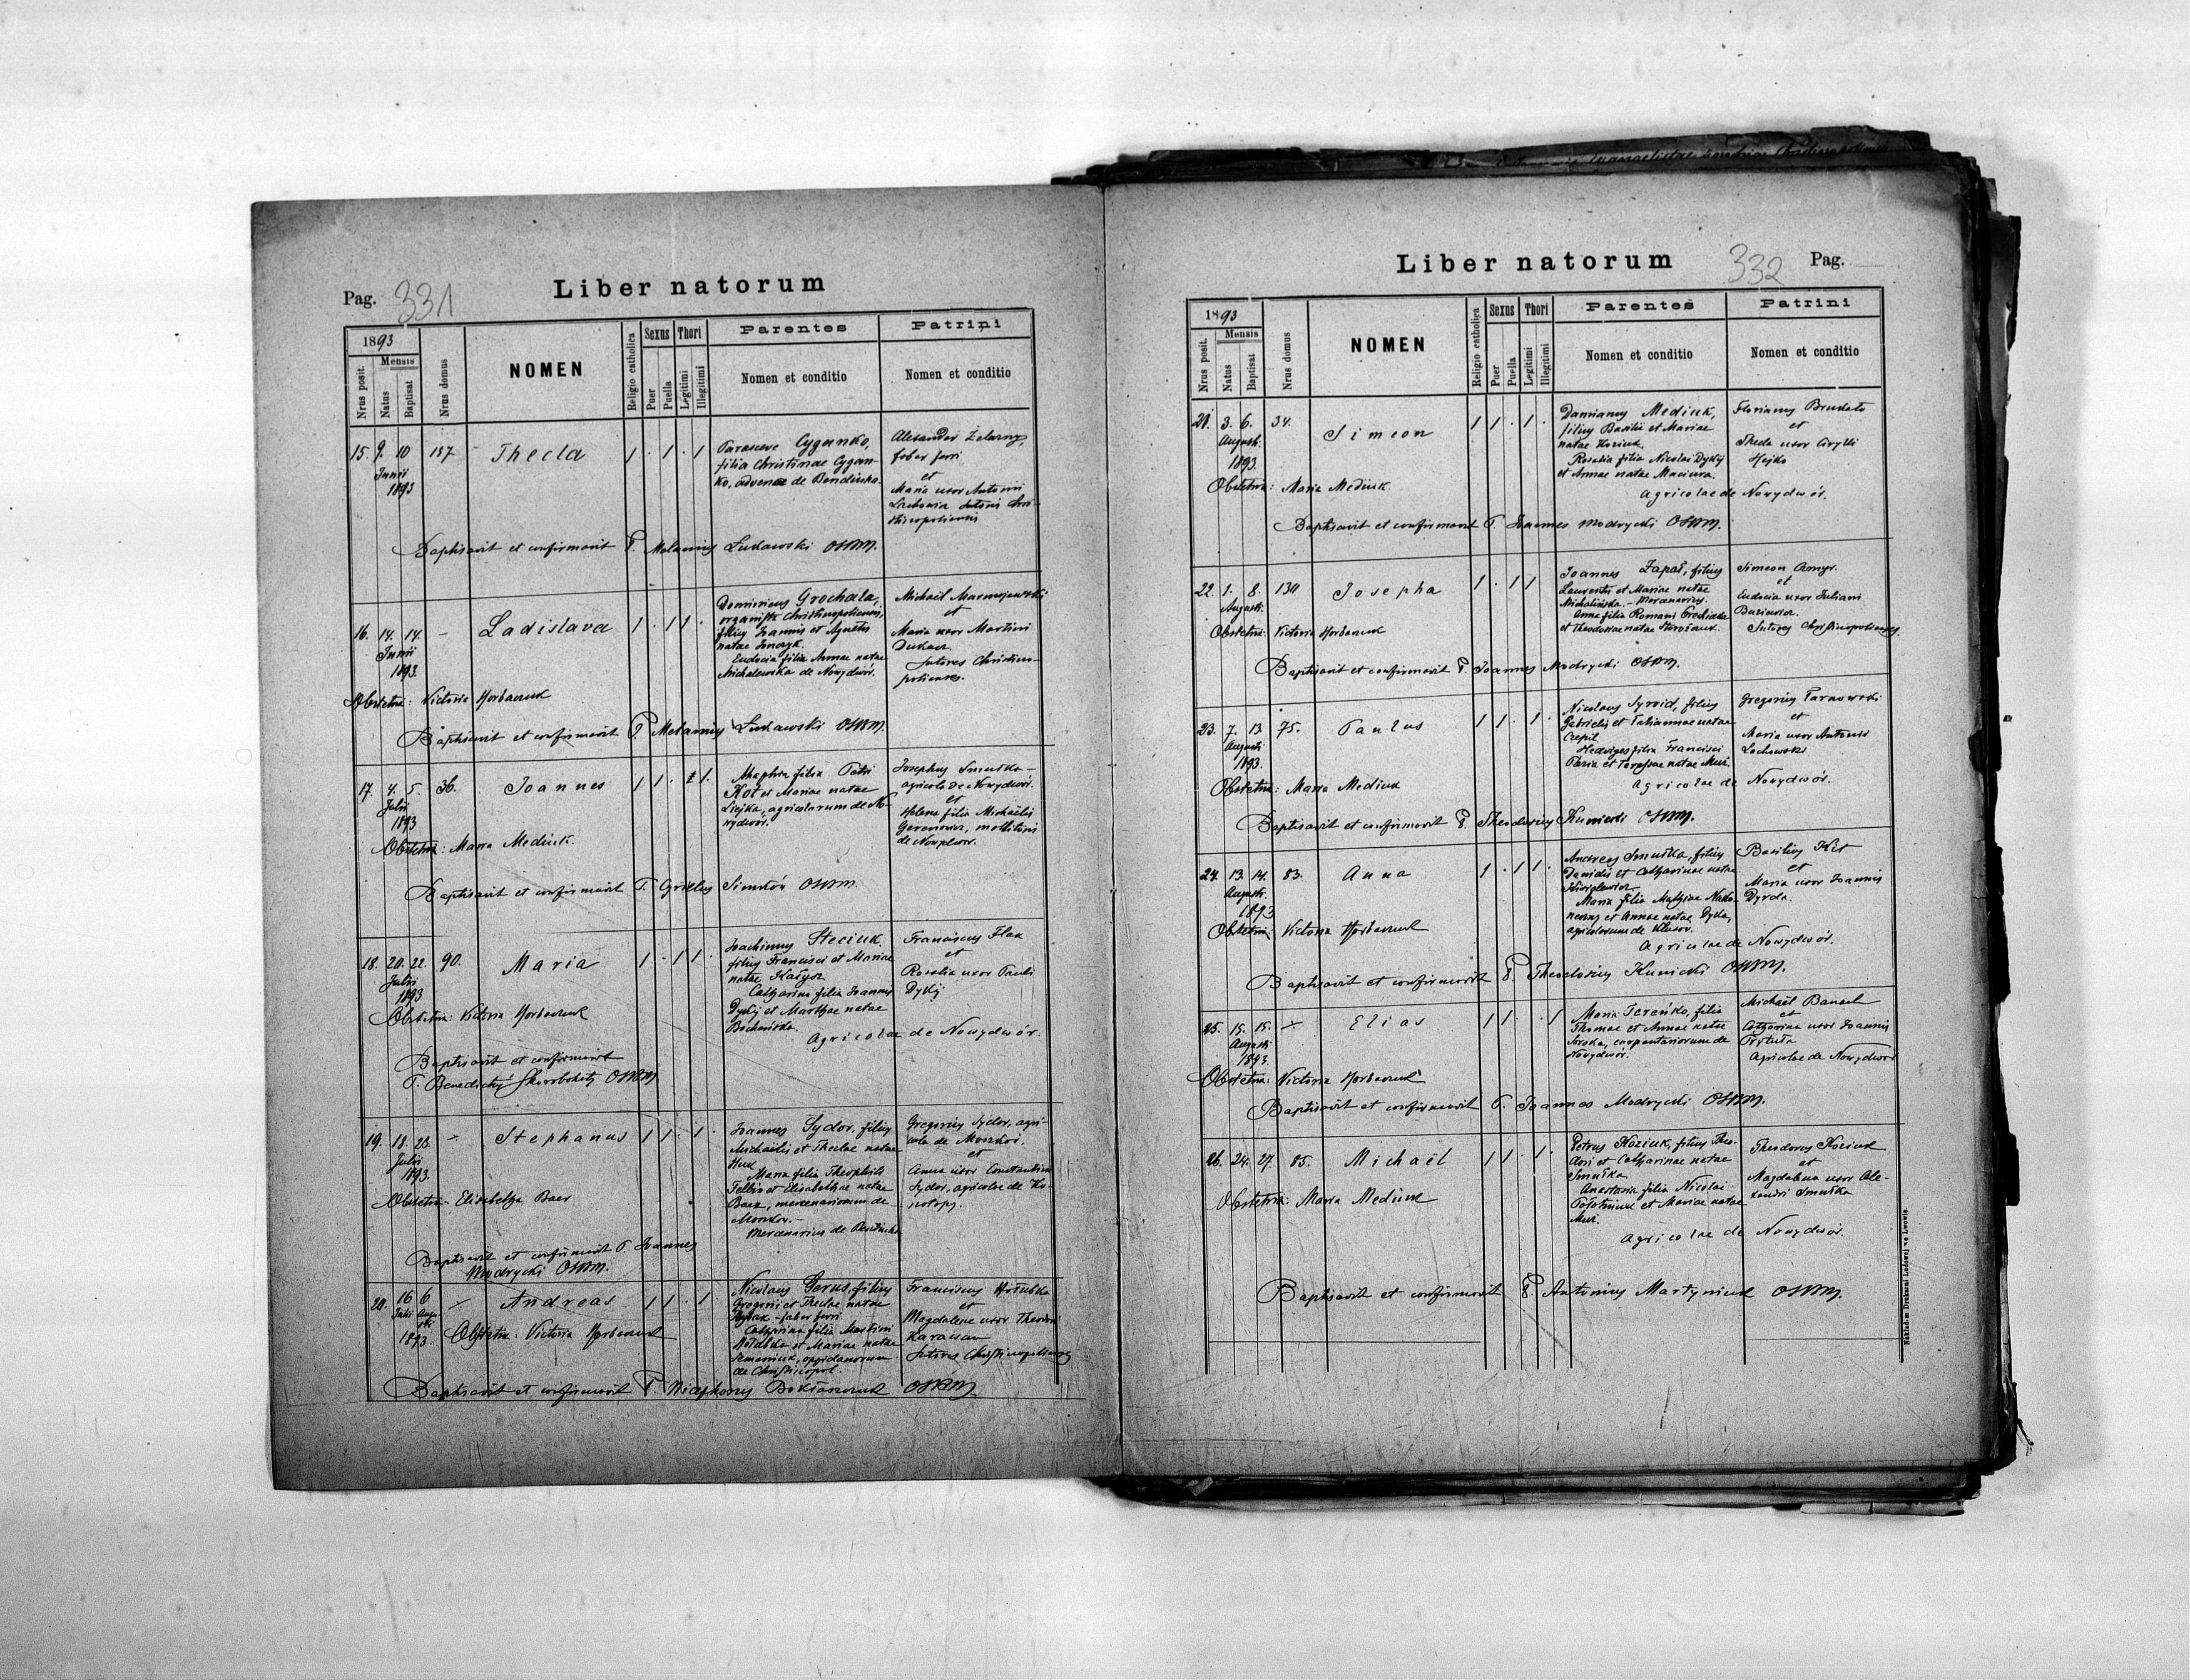 Pag. 331
Liber natorum
1893
Mensis
Nrus posit.
Natus
Baptisat
Nrus domus
NOMEN
Religio catholica
Sexus
Puer
Puella
Thori
Legitimi
Illegitimi
Parentes
Nomen et conditio
Patrini
Nomen et conditio
15. 9. 10 157 Thecla 1 . 1 . 1
Junii
1893
Parasceve Cyganko,
filia Christinae Cygan-
ko, advenae de Bendiuha.
Alexander Żelazny,
faber ferri
et
Maria uxor Antonii
Lachowicz sutoris Chri-
stinopoliensis
Baptisavit et confirmavit P. Melanius Łukawski OSBM.
16. 14. 14. - Ladislava 1 . 1 1 .
Junii
1893.
Dominicus Grochala,
organista Christinopoliensis,
filius Joannis et Agnetis
natae
Eudocia filia Annae natae
Michalewska de Nowydwór.
Michaël
et
Maria uxor Martini
Dukacz
sutores Christino-
polienses.
Obstetrix: Victoria Horbaczuk
Baptisavit et confirmavit P. Melanius Łukawski OSBM.
17. 4. 5. 36. Joannes 1 1 . 1.
Julii
1893
Ahaphia filia Petri
Kot et Mariae natae
Liejka, agricolarum de No-
wydwór.
Josephus Smutka -
agricola de Nowydwór.
et
Helena filia Michaëlis
Geronowicz, molitoris
de Nowydwór.
Obstetrix: Maria Mediuk.
Baptisavit et confirmavit P. Cyrillus OSBM.
18. 20. 22. 90. Maria 1 . 1 1 .
Julii
1893
Joachimus Steciuk
filius Francisci et Mariae
natae
Catharina filia Joannis
Dykij et Marthae natae
Bochańska.
Franciscus Flak
et
Rosalia uxor Pauli
Dykij
Agricolae de Nowydwór.
Obstetrix: Victoria Horbaczuk
Baptisavit et confirmavit
P. Benedictus Skorobohaty OSBM
19. 18. 23. - Stephanus 1 1 . 1 .
Julii
1893.
Joannes Sydor, filius
Michaëlis et Theclae natae
Huk
Maria filia Theophili
et Elisabethae natae
Baer, mercenariorum de
Moszkow.
Mercenarius de Bendiucha
Gregorius Sydor, agri-
cola de Moszkow.
et
Anna uxor Constantini
Sydor, agricolae de Ko-
notopy.
Obstetrix: Elisabetha Baer
Baptisavit et confirmavit P. Joannes
Modrycki OSBM.
20. 16 6 - Andreas 1 1 . 1 .
Julii Augu-
sti
1893.
Nicolaus Gerus, filius
Gregorii et Theclae natae
Rybak - faber ferri.
Catharina filia Martini
et Mariae natae
Semeniuk, oppidanorum
de Christinopol.
Franciscus
et
Magdalena uxor Theodori
Karaczun
sutores Christinopolienses
Obstetrix: Victoria Horbaczuk
Baptisavit et confirmavit P. Nicephorus OSBM
Liber natorum
332 Pag.
1893
Mensis
Nrus posit.
Natus
Baptisat
Nrus domus
NOMEN
Religio catholica
Sexus
Puer
Puella
Thori
Legitimi
Illegitimi
Parentes
Nomen et conditio
Patrini
Nomen et conditio
21. 3. 6. 34. Simeon 1 1 . 1 .
Augusti.
1893.
Damianus Mediuk,
filius Basilii et Mariae
natae Koziuk.
Rosalia filia Nicolai Dykij
et Annae natae Maciura.
Florianus
et
Thecla uxor Cyrilli
Hejko
Agricolae de Nowydwór.
Obstetrix: Maria Mediuk.
Baptisavit et confirmavit P. Joannes Modrycki OSBM.
22. 1. 8. 130 Josepha 1 . 1 1
Augusti.
Joannes Zapał, filius
Laurentii et Mariae natae
Michalińska. - Mercenarius.
Anna filia Romani
et Theodosiae natae
Simeon
et
Eudocia uxor Juliani
Buziewicz.
Sutores Christinopolienses
Obstetrix: Victoria Horbaczuk
Baptisavit et confirmavit P. Joannes Modrycki OSBM.
23. 7. 13. 75. Paulus 1 1 . 1 .
Augusti
1893.
Nicolaus Syroid, filius
Gabrielis et Tatiannae natae
Czepil
Hedviges filia Francisci
et natae Muz.
Gregorius Tarnowski
et
Maria uxor Antonii
Lachowski
Agricolae de Nowydwór.
Obstetrix: Maria Mediuk
Baptisavit et confirmavit P. Theodosius Kunicki OSBM.
24. 13. 14. 83. Anna 1 . 1 1 .
Augusti.
1893
Andreas Smutka, filius
et Catharinae natae
Maria filia Mathiae
et Annae natae Dyda,
agricolarum de Klusow.
Basilius Kit
et
Maria uxor Joannis
Dyrda.
Agricolae de Nowydwór.
Obstetrix: Victoria Horbaczuk
Baptisavit et confirmavit P. Theodosius Kunicki OSBM.
25. 15. 15. - Elias 1 1 . . 1
Augusti
1893.
Maria Tereńko, filia
Thomae et Annae natae
Soroka, carpentariorum de
Nowydwór.
Michaël Banach
et
Catharina uxor Joannis
Prytuła
Agricolae de Nowydwór
Obstetrix: Victoria Horbaczuk
Baptisavit et confirmavit P. Joannes Modrycki OSBM.
26. 24. 27. 85. Michaël 1 1 . 1 .
Petrus Koziuk, filius Theo-
dori et Catharinae natae
Smutka
Anastasia filia Nicolai
et Mariae natae
Muz.
Theodorus Koziuk
et
Magdalena uxor Ale-
xandri Smutka
Agricolae de Nowydwór.
Obstetrix: Maria Mediuk
Baptisavit et confirmavit P. Antonius Martyniuk OSBM.
Nakładem Drukarni Ludowej we Lwowie.